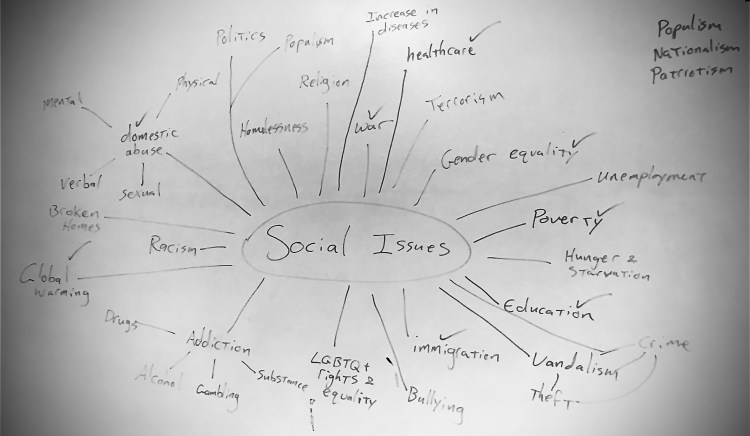 Increase in
diseases
Populism
Nationalism
Patriotism
Politics
Populism
healthcare
Religion
Physical
mental
Terrorism
domestic
abuse
Homelessness
war
Gender equality
verbal
sexual
unemployment
Broken
Homes
Poverty
Racism
Social Issues
Hunger &
Starvation
Global
warming
Education
Drugs
Addiction
immigration
Vandalism
Crime
LGBTQ+
rights &
equality
Alcohol
Gambling
Substance
Bullying
Theft